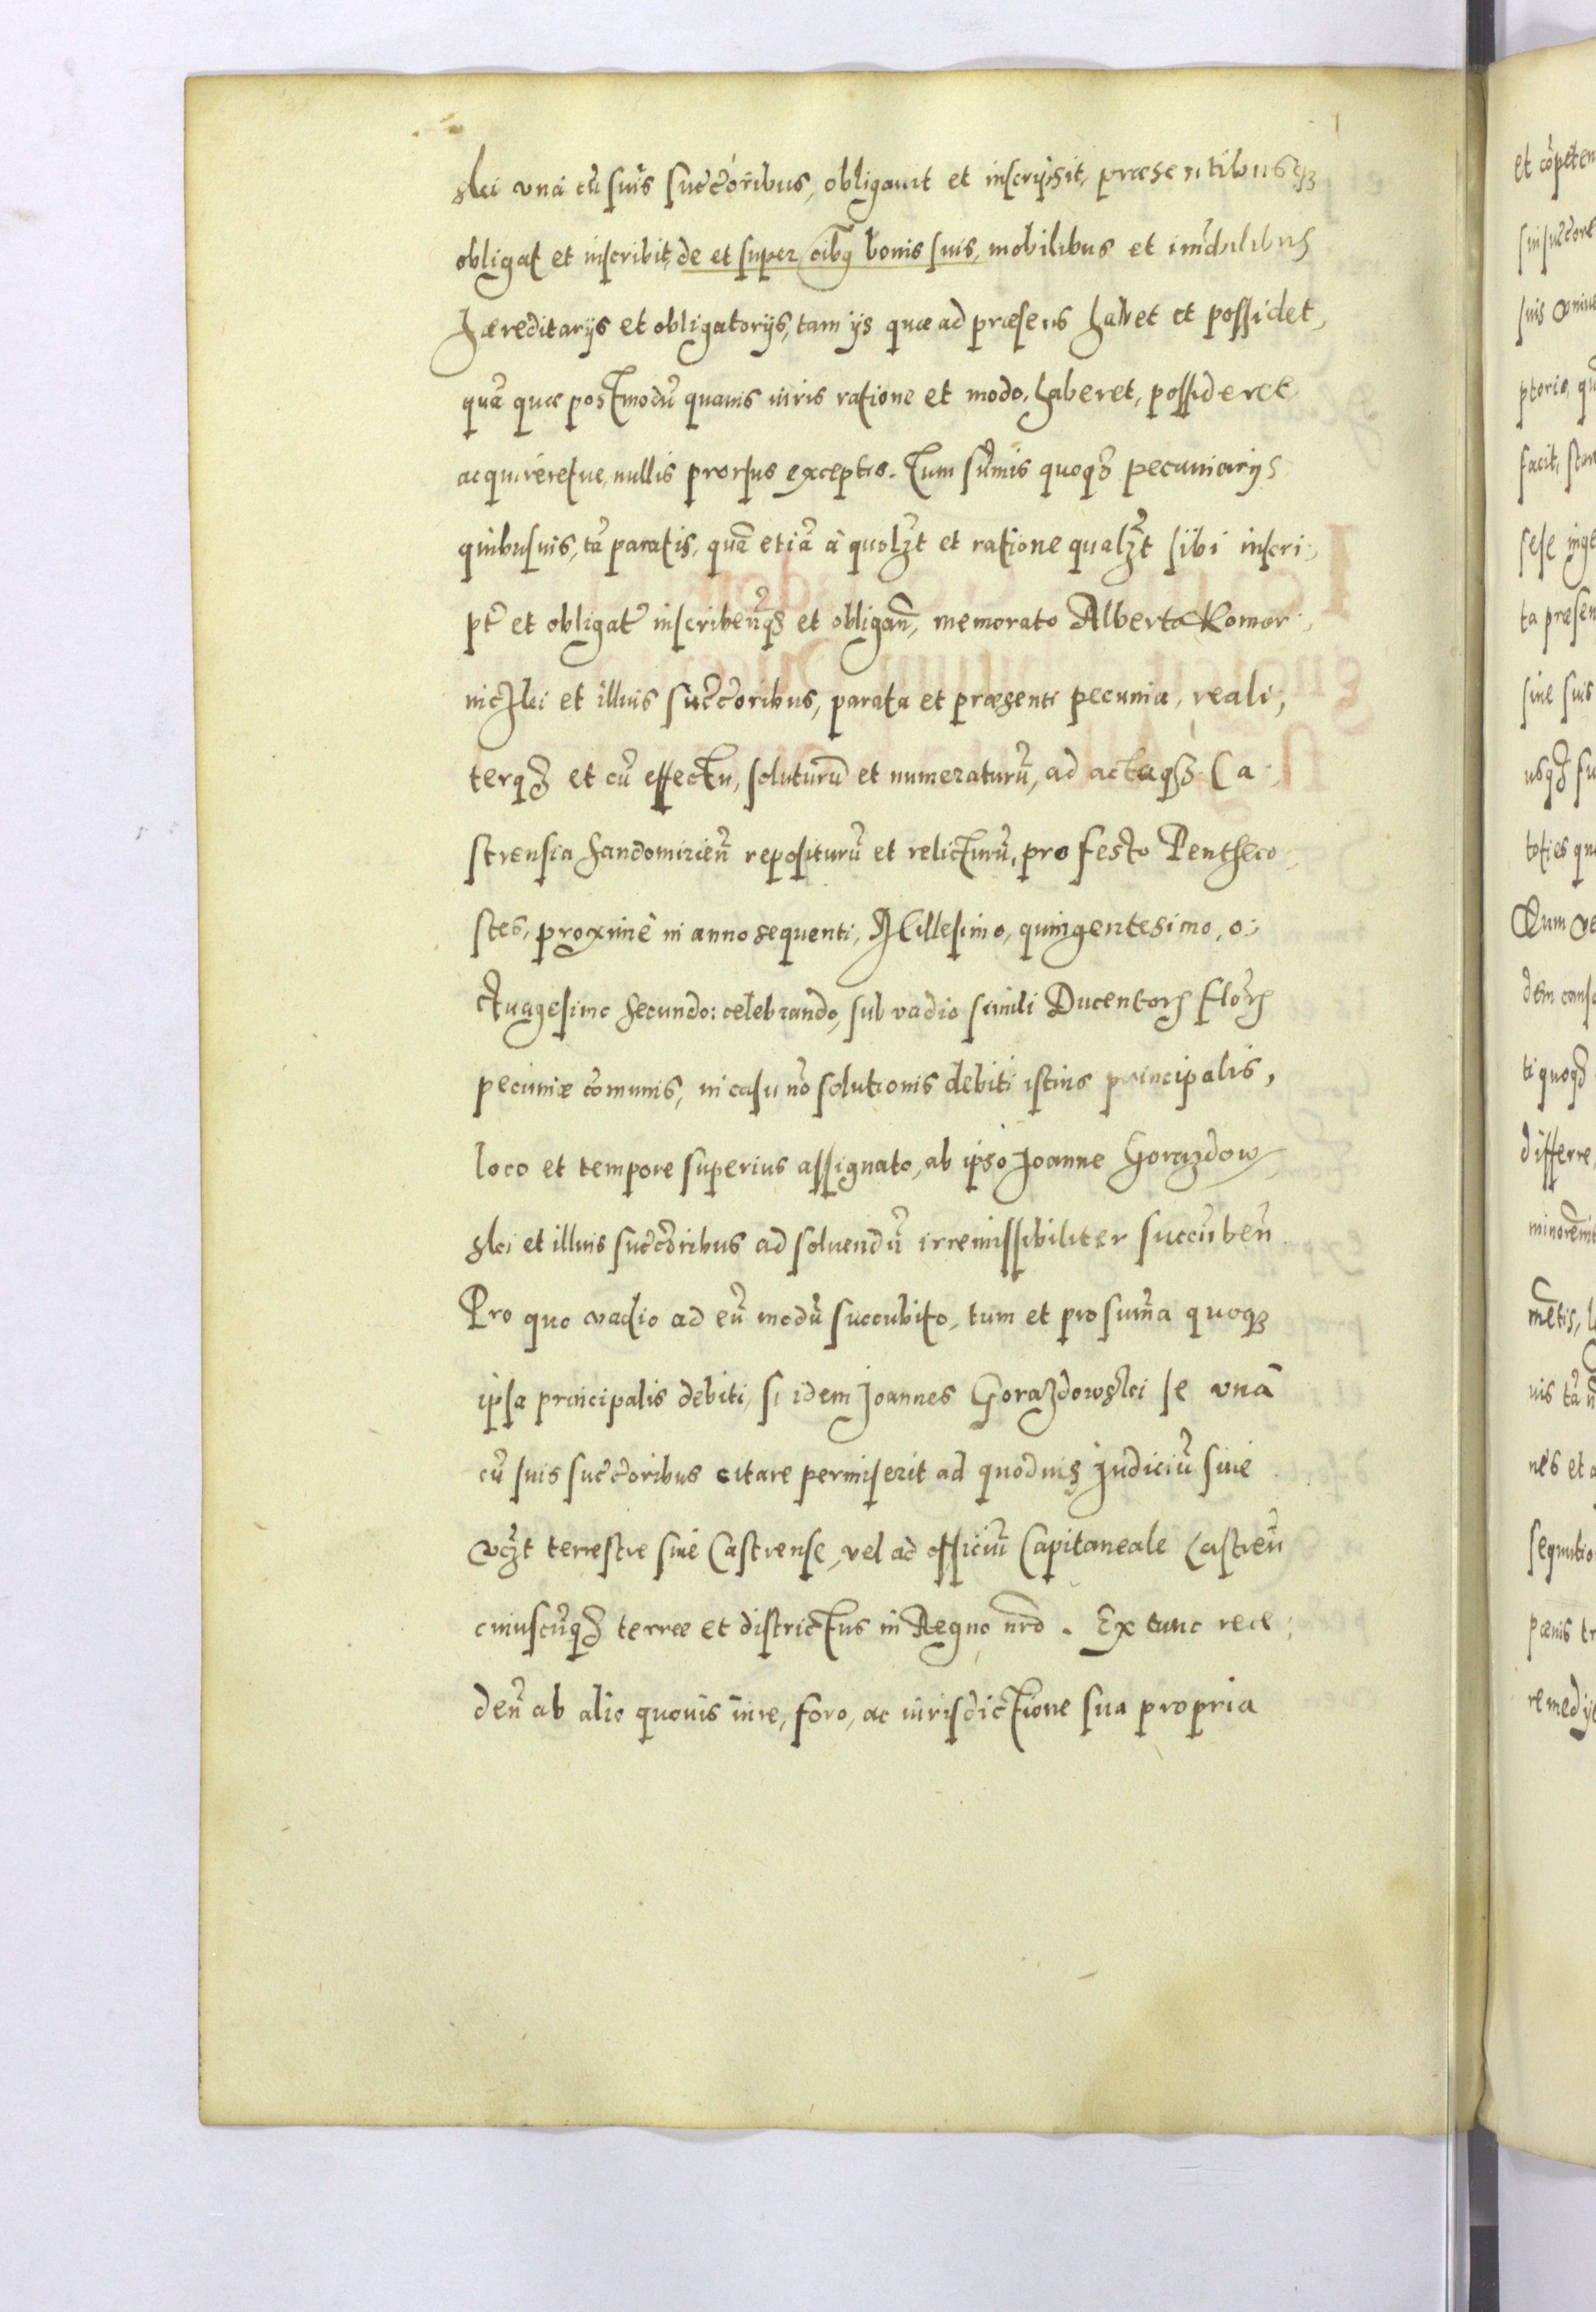 ski una cū suis succ̄oribus, obligauit et inscripsit, præsentibusq₃
obligat et inscribit, de et super oībꝯ bonis suis, mobilibus et im̄obilibus
hæreditarijs et obligatorijs, tam ijs quæ ad præsens habet et possidet,
quā quæ postmodū quauis iuris ratione et modo, haberet, possideret
acquireretue, nullis prorsus exceptis. Tum sum̄is quoq₃ pecuniarijs
quibusuis, tā paratis, quā etiā à quolꝫt et ratione qualꝫt sibi inscri-
pt̄ et obligat̄ inscribeñq₃ et obligañ, memorato Alberto Komor-
nicski et illius succ̄oribus, parata et præsenti pecunia, reali-
terq₃ et cū effectu, soluturū et numeraturū, ad actaq₃ Ca-
strensia Sandomirieñ repositurū et relicturū, pro festo Pentheco-
stes, proximè in anno sequenti, Millesimo, quingentesimo, o-
ctuagesimo secundo: celebrando, sub vadio simili Ducentorꝝ florꝝ
pecuniæ com̄unis, in casu nō solutionis debiti istius principalis,
loco et tempore superius assignato, ab ipso Joanne Gorazdow-
ski et illius succ̄oribus ad soluendū irremissibiliter succūbeñ
Pro quo vadio ad eū modū succubito, tum et pro sum̄a quoq₃
ipsa principalis debiti, si idem Joannes Gorazdowski se unà
cū suis succ̄oribus citare permiserit ad quoduis Judiciū siue
vcꝫt terrestre siue Castrense, vel ad officiū Capitaneale Castreñ
cuiuscūq₃ terræ et districtus in Regno nr̄o. Ex tunc rece-
deñ ab alio quouis iure, foro, ac iurisdictione sua propria